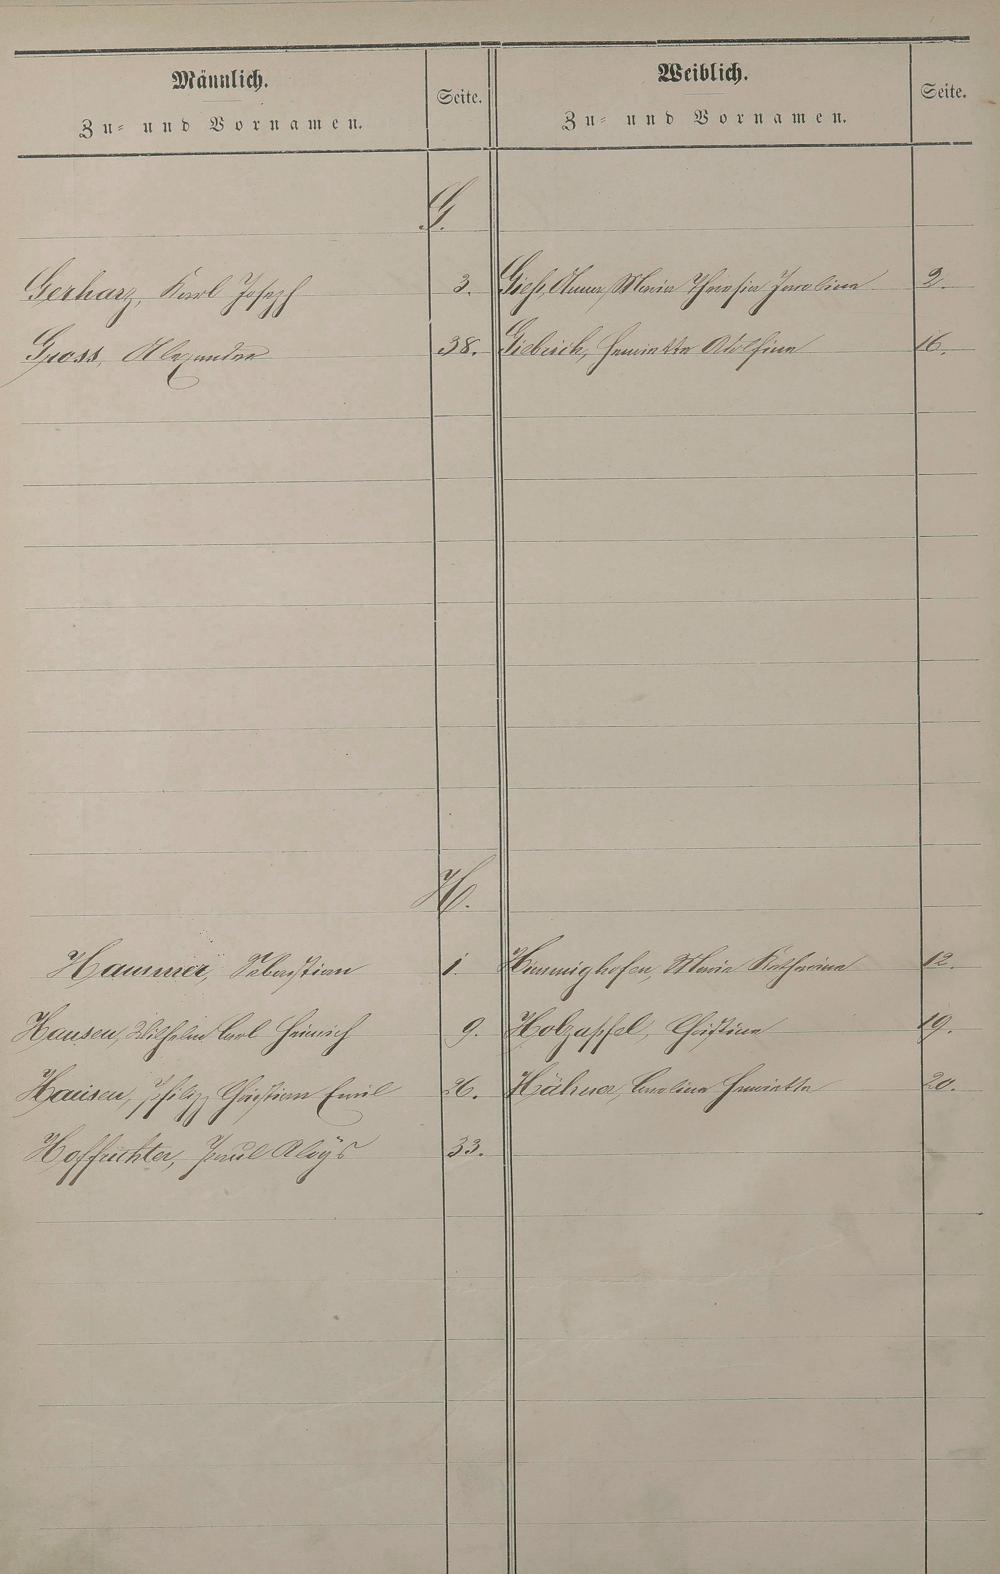 Männlich.
Zu- und Vornamen.
Seite.
Weiblich.
Zu- und Vornamen.
Seite.
G.
Gerharz, Karl Joseph 3.
Giess, Anna Maria Theresia Jacobina 2.
Gross, Alexander 38.
Giebrich, Henriette Adolfine 16.
H.
Hammer, Sebastian 1.
Himmighofen, Maria Katharina 12.
Hansen, Wilhelm Carl Heinrich 9.
Holzapfel, Christine 19.
Hansen, Philipp Christian Emil 26.
Hähner, Carolina Henriette 20.
Hoffrichter, Paul Aloÿs 33.